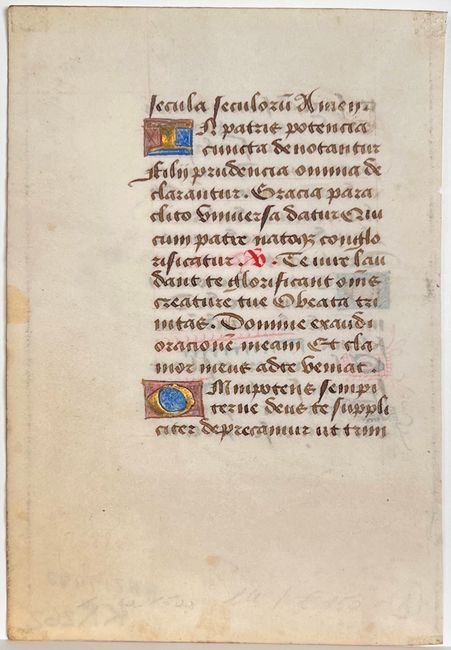 secula seculorū Amen
IN patris potencia
cuncta denotantur
Filij prudencia omnia de
clarantur. Gracia para
clito vniuersa datur Qui
cum patre natoqꝫ conglo
rificatur. V. Te iure lau
dant te glorificant om̄s
creature tue O beata tri
nitas. Domine exaudi
oracionē meam Et cla
mor meus ad te veniat.
OMnipotens sempi
terne deus te suppli
citer deprecamur ut trini